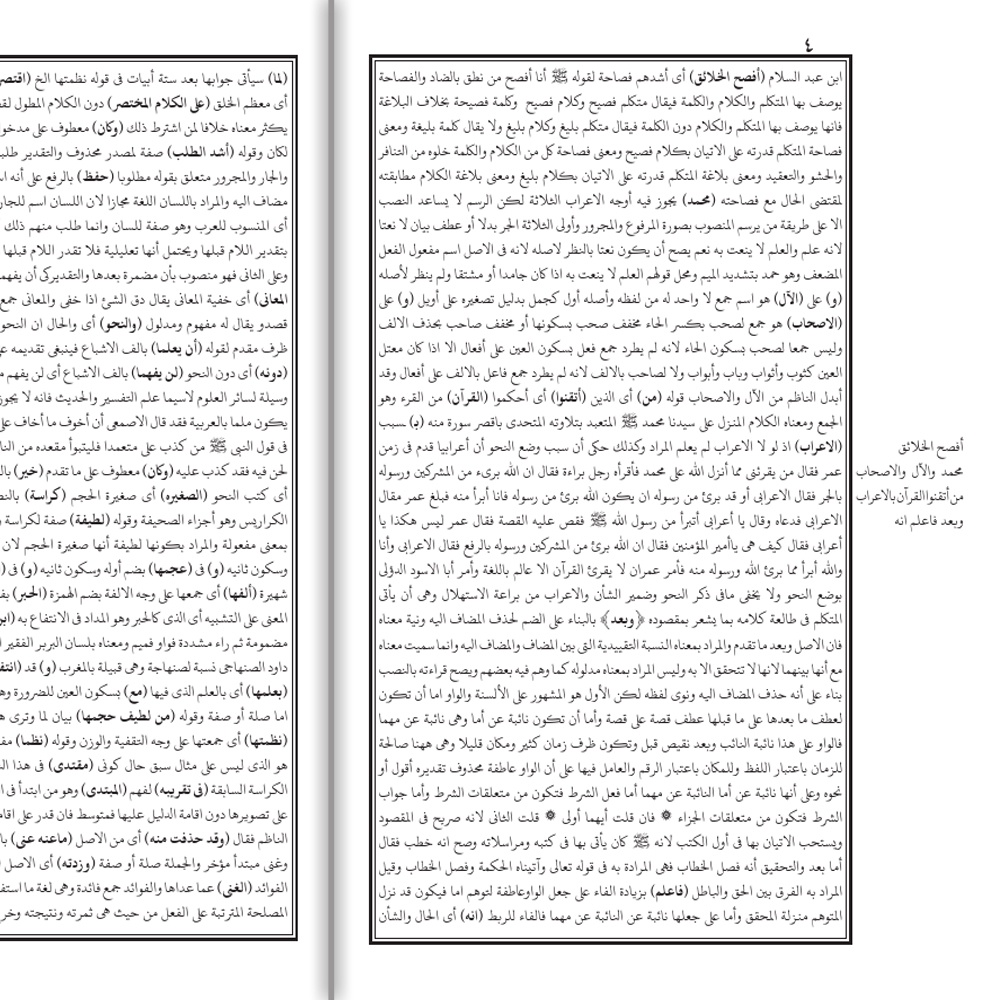 ٤
ابن عبد السلام (أفصح الخلائق) أى أشدهم فصاحة لقوله ﷺ أنا أفصح من نطق بالضاد والفصاحة
يوصف بها المتكلم والكلام والكلمة فيقال متكلم فصيح وكلام فصيح وكلمة فصيحة بخلاف البلاغة
فانها يوصف بها المتكلم والكلام دون الكلمة فيقال متكلم بليغ وكلام بليغ ولا يقال كلمة بليغة ومعنى
فصاحة المتكلم قدرته على الاتيان بكلام فصيح ومعنى فصاحة كل من الكلام والكلمة خلوه من التنافر
والحشو والتعقيد ومعنى بلاغة المتكلم قدرته على الاتيان بكلام بليغ ومعنى بلاغة الكلام مطابقته
لمقتضى الحال مع فصاحته (محمد) يجوز فيه أوجه الاعراب الثلاثة لكن الرسم لا يساعد النصب
الا على طريقة من يرسم المنصوب بصورة المرفوع والمجرور وأولى الثلاثة الجر بدلا أو عطف بيان لا نعتا
لانه علم والعلم لا ينعت به نعم يصح أن يكون نعتا بالنظر لاصله لانه فى الاصل اسم مفعول الفعل
المضعف وهو حمد بتشديد الميم ومحل قولهم العلم لا ينعت به اذا كان جامدا أو مشتقا ولم ينظر لأصله
(و) على (الآل) هو اسم جمع لا واحد له من لفظه وأصله أول كجمل بدليل تصغيره على أويل (و) على
(الاصحاب) هو جمع لصحب بكسر الحاء مخفف صحب بسكونها أو مخفف صاحب بحذف الالف
وليس جمعا لصحب بسكون الحاء لانه لم يطرد جمع فعل بسكون العين على أفعال الا اذا كان معتل
العين كثوب وأثواب وباب وأبواب ولا لصاحب بالالف لانه لم يطرد جمع فاعل بالالف على أفعال وقد
أبدل الناظم من الآل والاصحاب قوله (من) أى الذين (أتقنوا) أى أحكموا (القرآن) من القرء وهو
الجمع ومعناه الكلام المنزل على سيدنا محمد ﷺ المتعبد بتلاوته المتحدى باقصر سورة منه (بـ) سبب
(الاعراب) اذ لو لا الاعراب لم يعلم المراد وكذلك حكى أن سبب وضع النحو أن أعرابيا قدم فى زمن
عمر فقال من يقرئنى مما أنزل الله على محمد فأقرأه رجل براءة فقال ان الله برىء من المشركين ورسوله
بالجر فقال الاعرابى أو قد برئ من رسوله ان يكون الله برئ من رسوله فانا أبرأ منه فبلغ عمر مقال
الاعرابى فدعاه وقال يا أعرابى أتتبرأ من رسول الله ﷺ فقص عليه القصة فقال عمر ليس هكذا يا
أعرابى فقال كيف هى ياأمير المؤمنين فقال ان الله برئ من المشركين ورسوله بالرفع فقال الاعرابى وأنا
والله أبرأ مما برئ الله ورسوله منه فأمر عمران لا يقرئ القرآن الا عالم باللغة وأمر أبا الاسود الدؤلى
بوضع النحو ولا يخفى مافى ذكر النحو وضمير الشأن والاعراب من براعة الاستهلال وهى أن يأتى
المتكلم فى طالعة كلامه بما يشعر بمقصوده ﴿وبعد﴾ بالبناء على الضم لحذف المضاف اليه ونية معناه
فان الاصل وبعد ما تقدم والمراد بمعناه النسبة التقييدية التى بين المضاف والمضاف اليه وانما سميت معناه
مع أنها بينهما لانها لا تتحقق الا به وليس المراد بمعناه مدلوله كما وهم فيه بعضهم ويصح قراءته بالنصب
بناء على أنه حذف المضاف اليه ونوى لفظه لكن الأول هو المشهور على الألسنة والواو اما أن تكون
لعطف ما بعدها على ما قبلها عطف قصة على قصة وأما أن تكون نائبة عن أما وهى نائبة عن مهما
فالواو على هذا نائبة النائب وبعد نقيص قبل وتكون ظرف زمان كثير ومكان قليلا وهى ههنا صالحة
للزمان باعتبار اللفظ وللمكان باعتبار الرقم والعامل فيها على أن الواو عاطفة محذوف تقديره أقول أو
نحوه وعلى أنها نائبة عن أما النائبة عن مهما أما فعل الشرط فتكون من متعلقات الشرط وأما جواب
الشرط فتكون من متعلقات الجزاء * فان قلت أيهما أولى * قلت الثانى لانه صريح فى المقصود
ويستحب الاتيان بها فى أول الكتب لانه ﷺ كان يأتى بها فى كتبه ومراسلاته وصح انه خطب فقال
أما بعد والتحقيق أنه فصل الخطاب فهى المرادة به فى قوله تعالى وآتيناه الحكمة وفصل الخطاب وقيل
المراد به الفرق بين الحق والباطل (فاعلم) بزيادة الفاء على جعل الواوعاطفة لتوهم اما فيكون قد نزل
المتوهم منزلة المحقق وأما على جعلها نائبة عن النائبة عن مهما فالفاء للربط (انه) أى الحال والشأن
أفصح الخلائق
محمد والآل والاصحاب
من أتقنوا القرآن بالاعراب
وبعد فاعلم انه
(لما) سيأتى جوابها بعد ستة أبيات فى قوله نظمتها الخ
أى معظم الخلق (على الكلام المختصر) دون الكلام المطول
يكثر معناه خلافا لمن اشترط ذلك (وكان) معطوف على
لكان وقوله (أشد الطلب) صفة لمصدر محذوف والتقدير
والجار والمجرور متعلق بقوله مطلوبا (حفظ) بالرفع على أنه
مضاف اليه والمراد باللسان اللغة مجازا لان اللسان اسم
أى المنسوب للعرب وهو صفة للسان وانما طلب منهم ذلك
بتقدير اللام قبلها ويحتمل أنها تعليلية فلا تقدر اللام قبلها
وعلى الثانى فهو منصوب بأن مضمرة بعدها والتقديركى أن
المعانى) أى خفية المعانى يقال دق الشئ اذا خفى والمعانى جمع
قصدو يقال له مفهوم ومدلول (والنحو) أى والحال ان النحو
ظرف مقدم لقوله (أن يعلما) بالف الاشباع فينبغى تقديمه
(دونه) أى دون النحو (لن يفهما) بالف الاشباع أى لن يفهم
وسيلة لسائر العلوم لاسيما علم التفسير والحديث فانه لا يجوز
يكون ملما بالعربية فقد قال الاصمعى أن أخوف ما أخاف
فى قول النبى ﷺ من كذب على متعمدا فليتبوأ مقعده من
لحن فيه فقد كذب عليه (وكان) معطوف على ما تقدم (خير)
أى كتب النحو (الصغيره) أى صغيرة الحجم (كراسة)
الكراريس وهو أجزاء الصحيفة وقوله (لطيفة) صفة لكراسة
بمعنى مفعولة والمراد بكونها لطيفة أنها صغيرة الحجم لان
وسكون ثانيه (و) فى (عجمها) بضم أوله وسكون ثانيه (و) فى
شهيرة (ألفها) أى جمعها على وجه الالفة بضم الهمزة (الحبر)
المعنى على التشبيه أى الذى كالحبر وهو المداد فى الانتفاع به
مضمومة ثم راء مشددة فواو فميم ومعناه بلسان البربر الفقير
داود الصنهاجى نسبة لصنهاجة وهى قبيلة بالمغرب (و) قد
(بعلمها) أى بالعلم الذى فيها (مع) بسكون العين للضرورة
اما صلة أو صفة وقوله (من لطيف حجمها) بيان لما وترى
(نظمتها) أى جمعتها على وجه التقفية والوزن وقوله (نظما)
هو الذى ليس على مثال سبق حال كونى (مقتدى) فى هذا
الكراسة السابقة (فى تقريبه) لفهم (المبتدى) وهو من ابتدأ فى
على تصويرها دون اقامة الدليل عليها فمتوسط فان قدر على
الناظم فقال (وقد حذفت منه) أى من الاصل (ماعنه غنى)
وغنى مبتدأ مؤخر والجملة صلة أو صفة (وزدته) أى الاصل
الفوائد (الغنى) عما عداها والفوائد جمع فائدة وهى لغة ما
المصلحة المترتبة على الفعل من حيث هى ثمرته ونتيجته